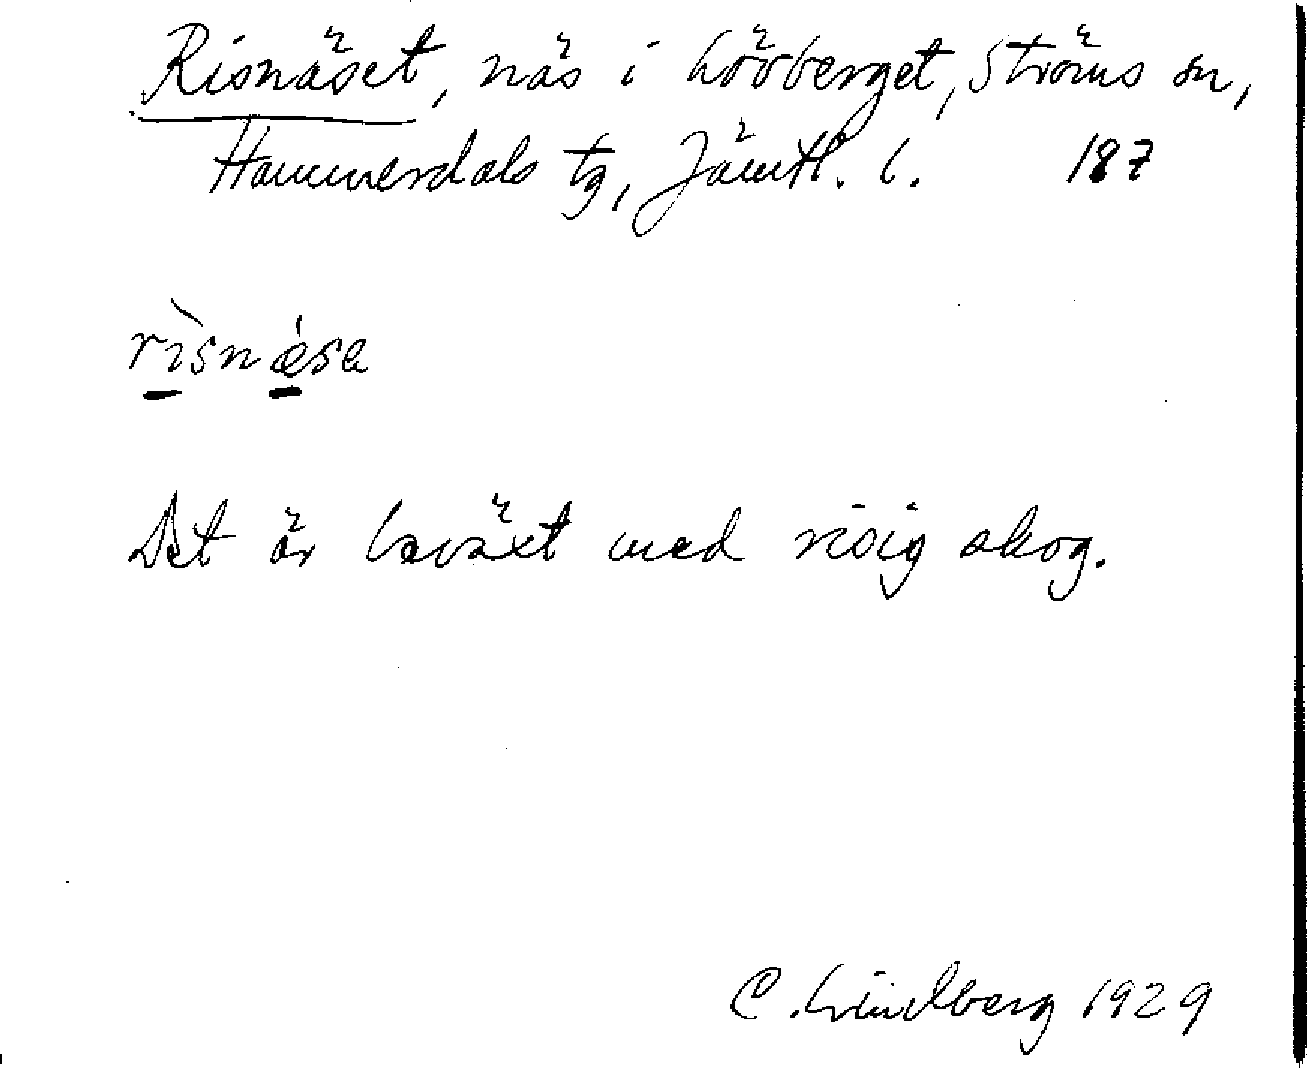 Risnäset, näs i Lövberget, Ströms sn,
Hammerdals tg, Jämtl. l. 187
rìsnǽsa
Det är beväxt med risig skog.
C. Lindberg 1929